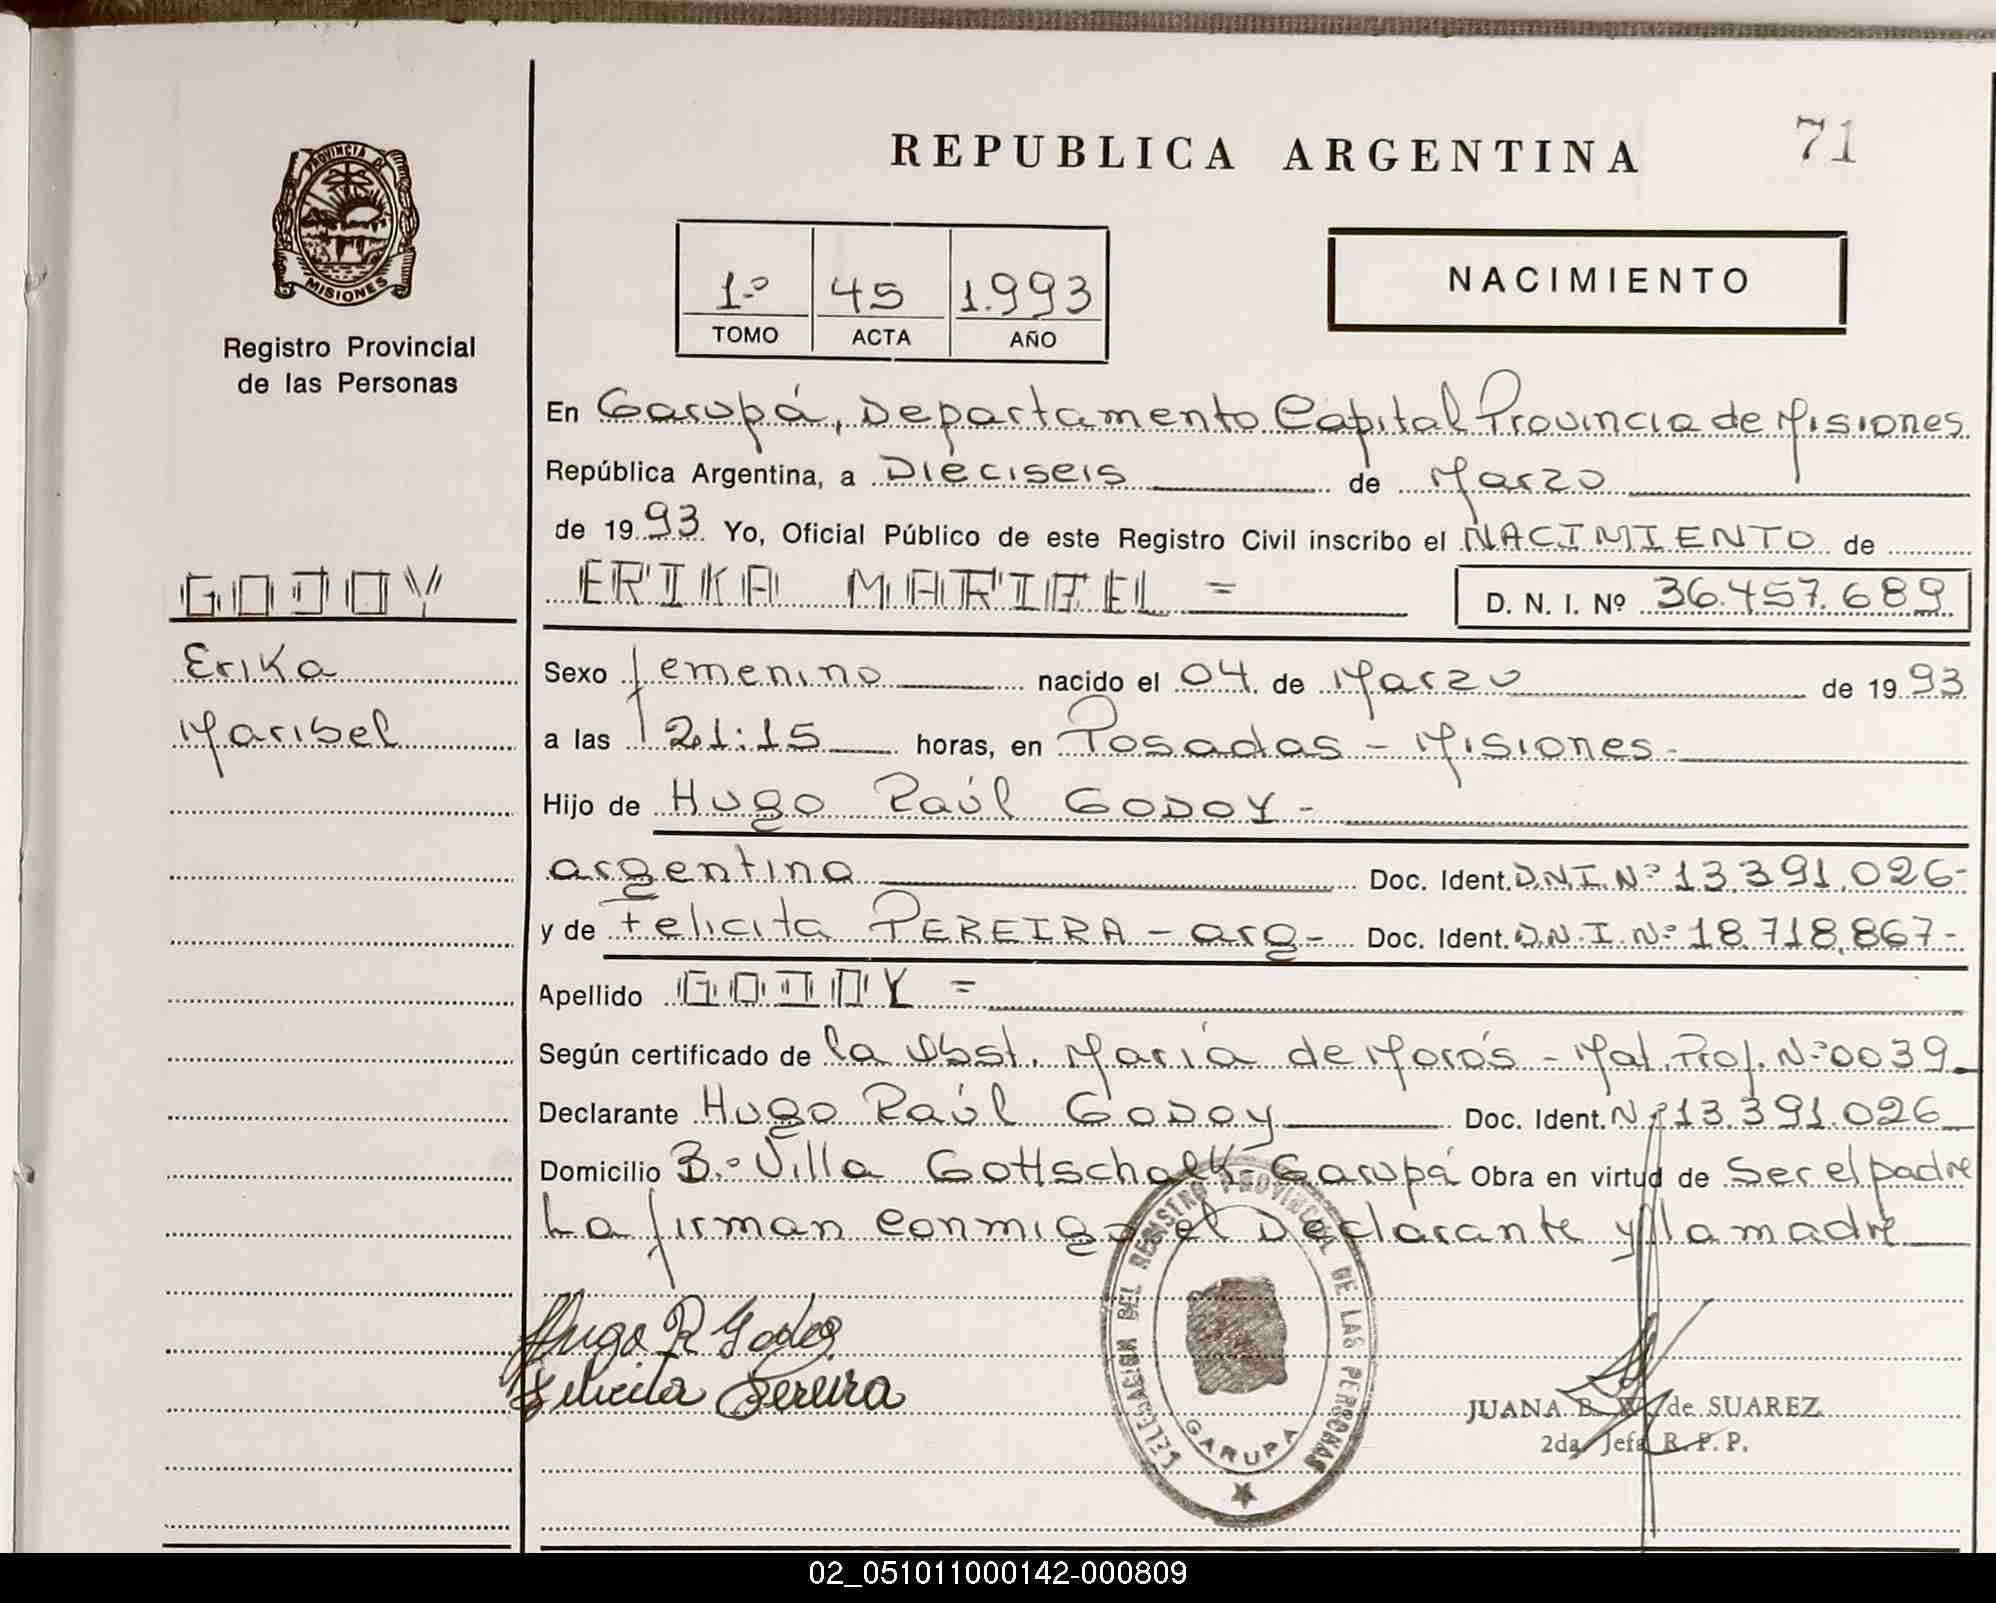 REPUBLICA ARGENTINA
71
PROVINCIA DE
MISIONES
Registro Provincial
de las Personas
1.º 45 1.993
TOMO ACTA AÑO
NACIMIENTO
En Garupá, Departamento Capital Provincia de Misiones
República Argentina, a Dieciseis de Marzo
de 1993 Yo, Oficial Público de este Registro Civil inscribo el NACIMIENTO de
GODOY
ERIKA MARIBEL =
D. N. I. Nº 36.457.689
Erika
Maribel
Sexo femenino nacido el 04 de Marzo de 1993
a las 21:15 horas, en Posadas - Misiones.
Hijo de Hugo Raúl GODOY -
argentino Doc. Ident. D.N.I. Nº 13.391.026-
y de Felicita PEREIRA - arg- Doc. Ident. D.N.I. Nº 18.718.867-
Apellido GODOY =
Según certificado de la Obst. María de Morós - Mat. Prof. Nº 0039
Declarante Hugo Raúl Godoy Doc. Ident. Nº 13.391.026
Domicilio B.º Villa Gottschalk Garupá Obra en virtud de Ser el padre
La firman conmigo el Declarante y la madre
Hugo R Godoy
Felicita Pereira
DELEGACION DEL REGISTRO PROVINCIAL DE LAS PERSONAS
GARUPA
JUANA B. W. de SUAREZ
2da Jefa R. P. P.
02_051011000142-000809